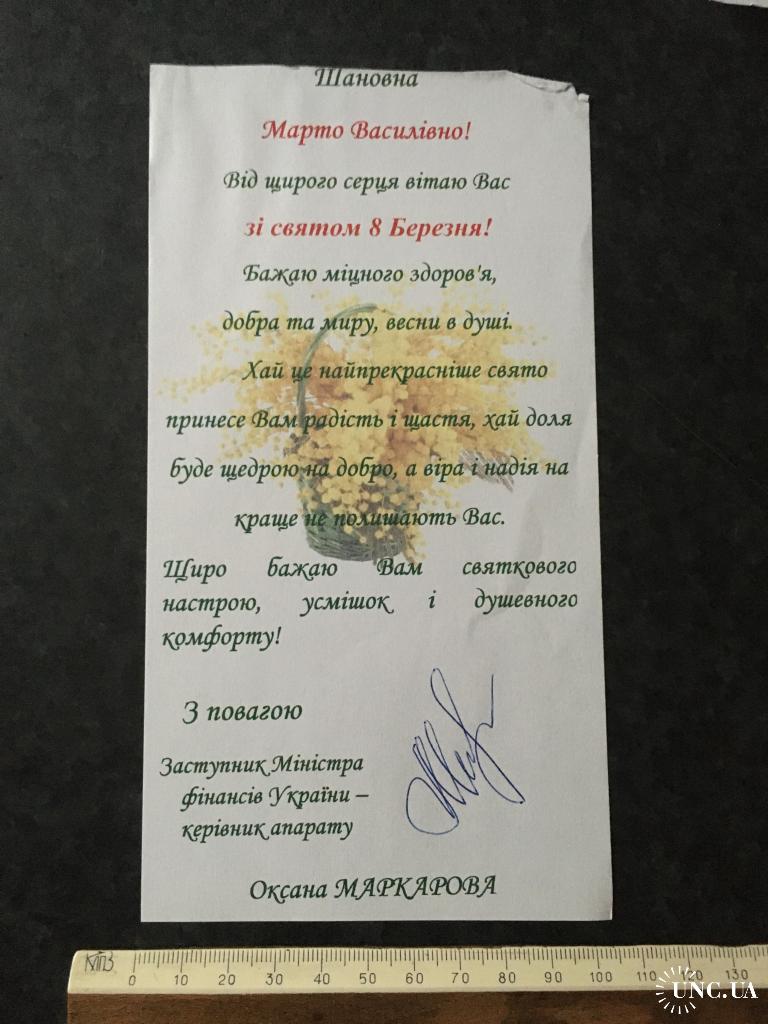 Шановна
Марто Василівно!
Від щирого серця вітаю Вас
зі святом 8 Березня!
Бажаю міцного здоров'я,
добра та миру, весни в душі.
Хай це найпрекрасніше свято
принесе Вам радість і щастя, хай доля
буде щедрою на добро, а віра і надія на
краще не полишають Вас.
Щиро бажаю Вам святкового
настрою, усмішок і душевного
комфорту!
З повагою
Заступник Міністра
фінансів України –
керівник апарату
Оксана МАРКАРОВА
0 10 20 30 40 50 60 70 80 90 100 110 120 130
UNC.UA